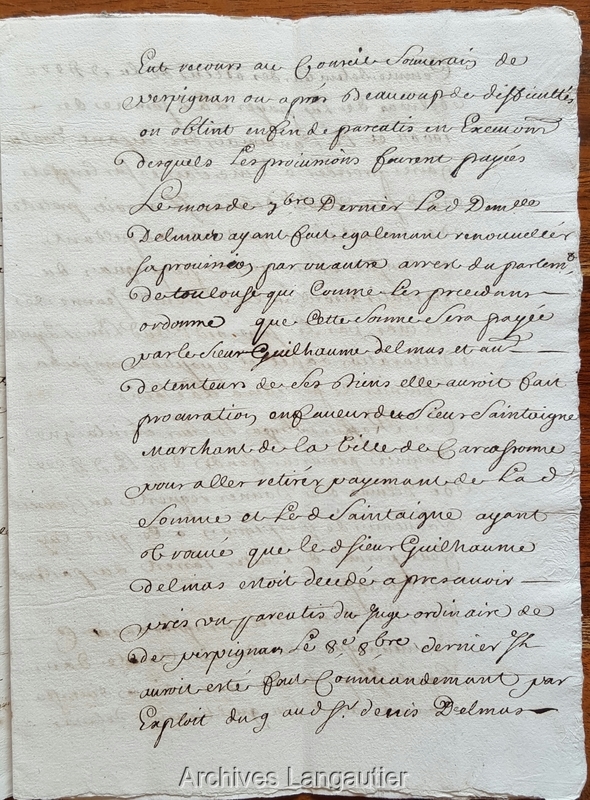 Eut recours au Conseil Souverain de
perpignan ou aprés Beaucoup de difficultés
on obtint enfin de pareatis en Execuōn
desquels Les provisions furent payées
Le mois de 7bre Dernier La d Demlle
Delmas ayant fait egalement renouveller
sa provision par un autre arrest du parlemt
de toulouse qui Comme Les precedans
ordonne que Cette Somme Sera payée
par le Sieur Guilhaume delmas et aut
detenteurs de Ses Biens elle auroit fait
procuration en faveur du Sieur Saintaigne
Marchant de la Ville de Carcassonne
pour aller retirér payemant de La d
Somme et Le d Saintaigne ayant
trouvé que le d Sieur Guilhaume
Delmas etoit decedé apres avoir
pris un pareatis du Juge ordinaire de
de perpignan Le 8e 8bre dernier Il
auroit esté fait Commandemant par
Exploit du 9 au d Sr. denis Delmas
Archives Langautier